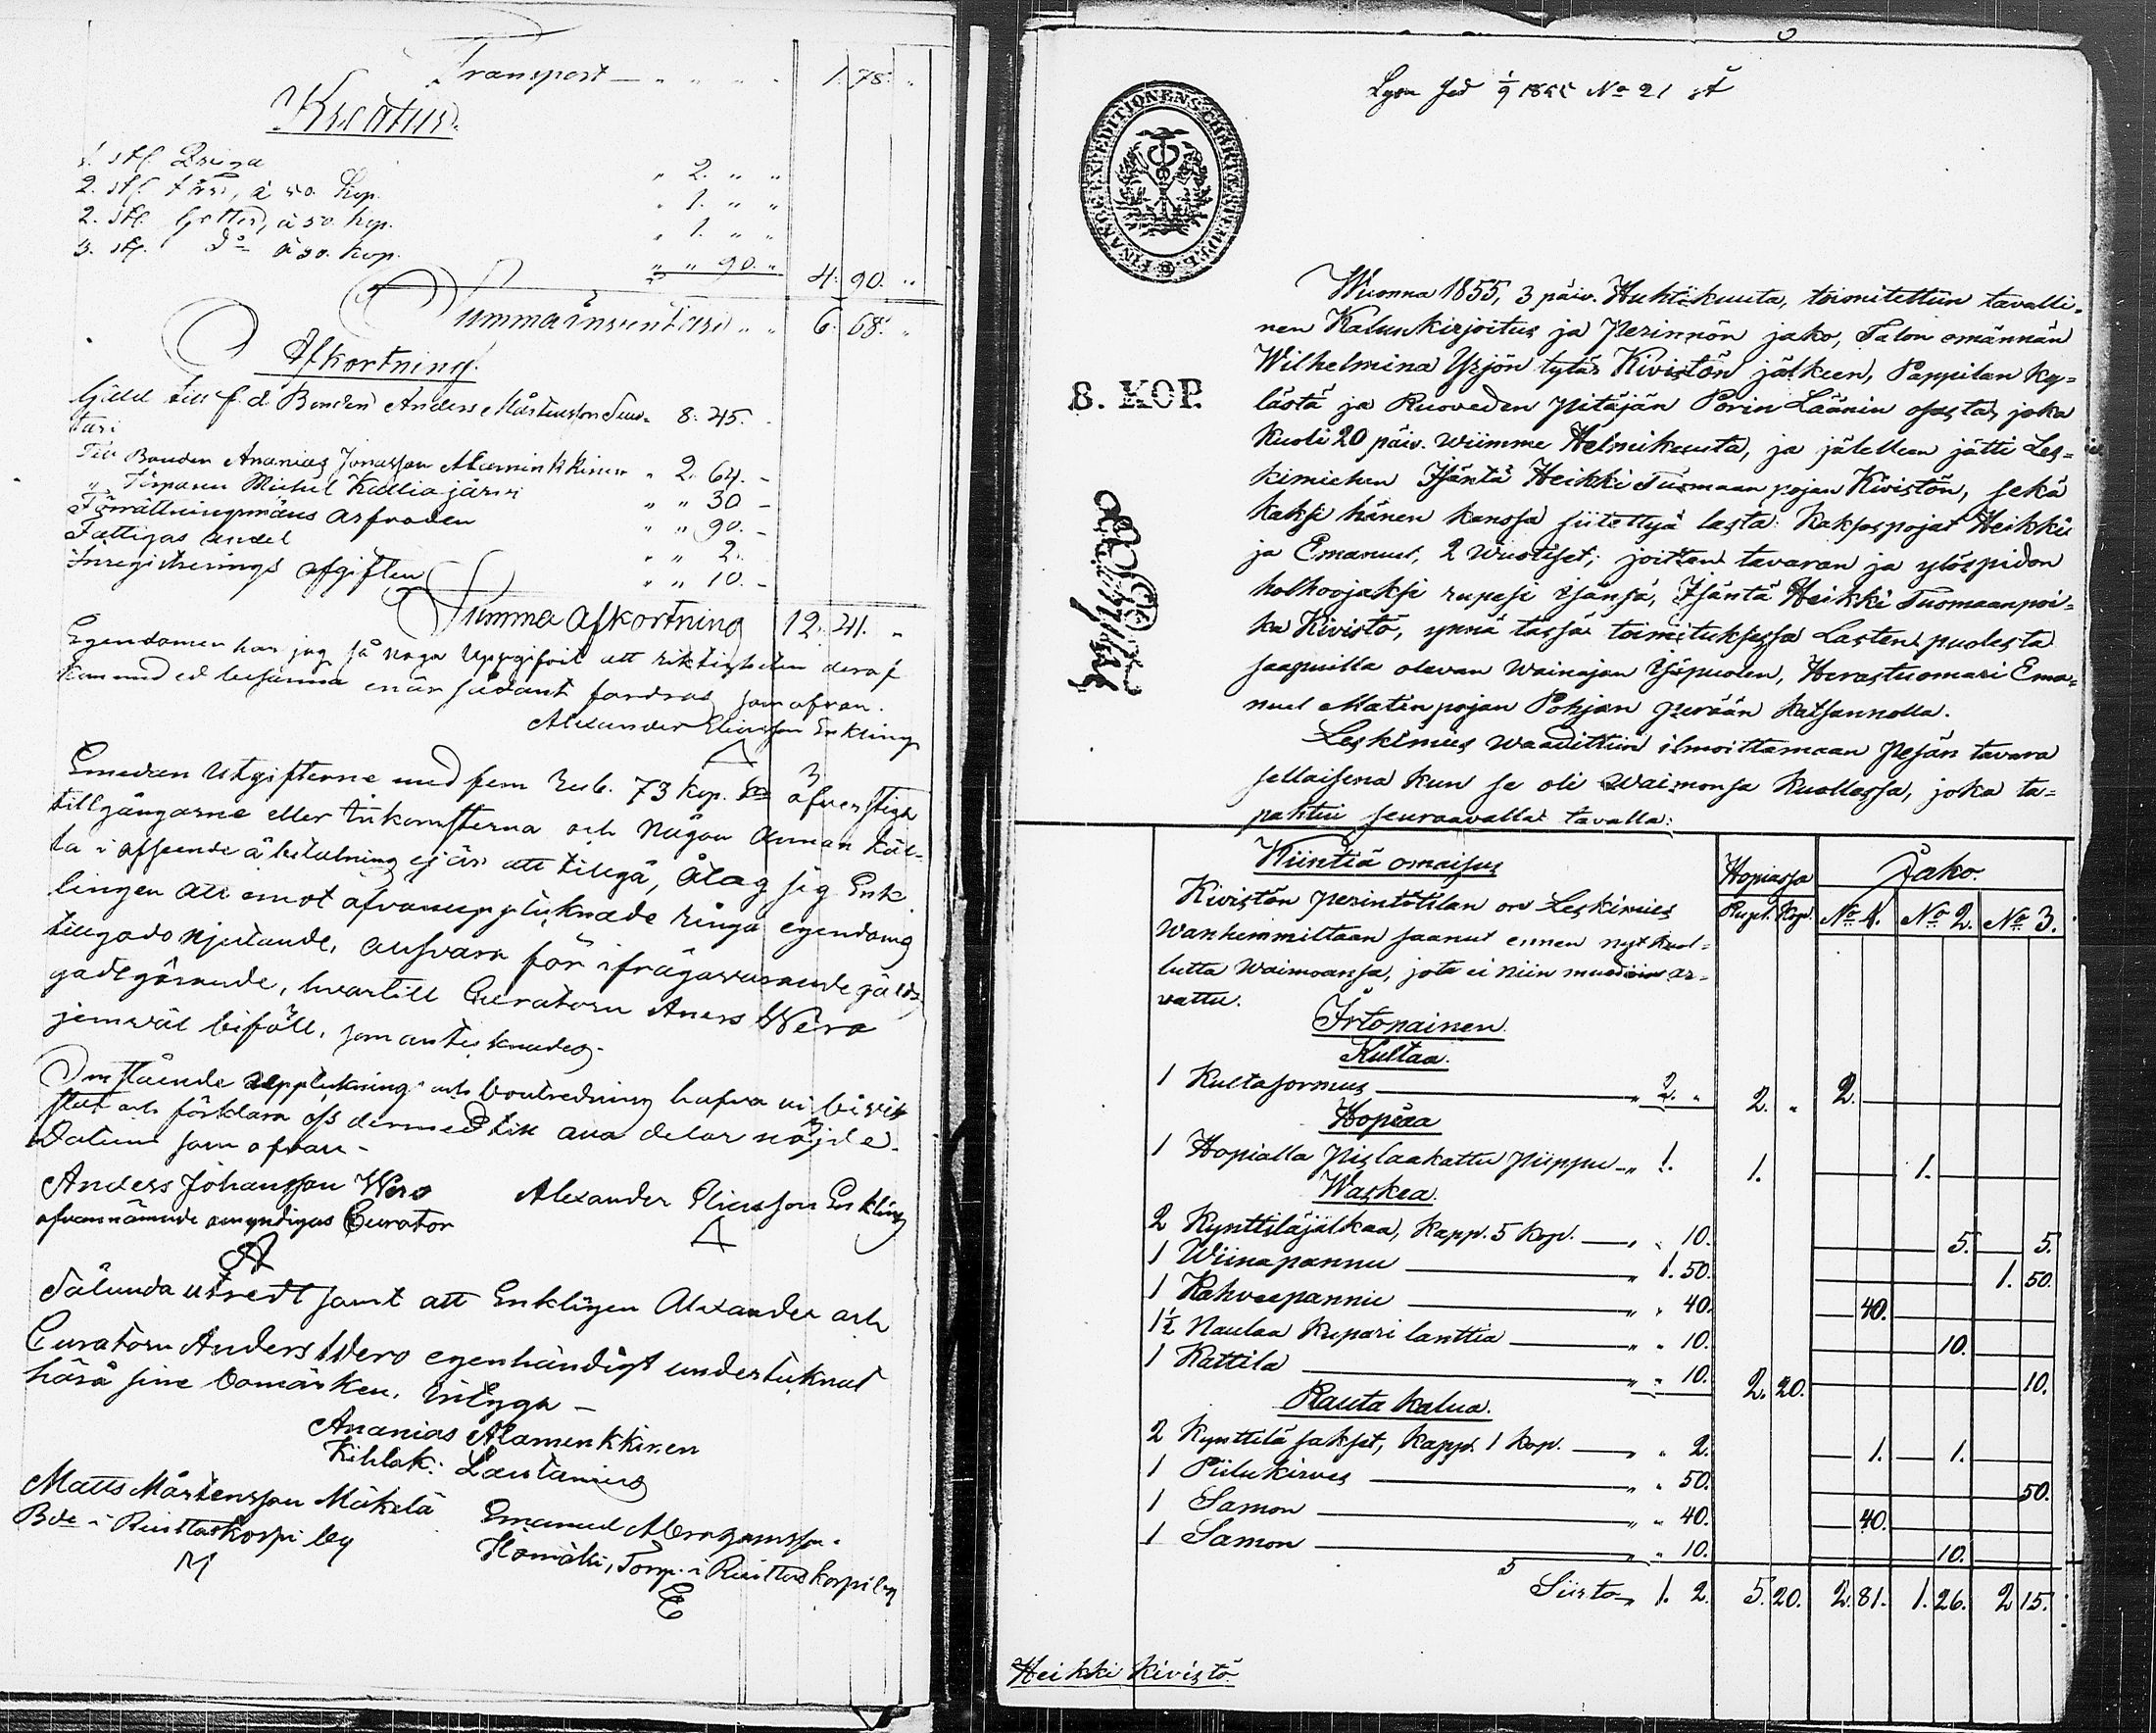 Transport — " " " " 1. 78. "
Kreatur.
1. stk. Qviga " 2. " "
2. stk. fårr, à 50. kop. " 1. " "
2. stk. Getter, à 50. kop. " 1. " "
3. stk. d:o à 30. kop. " " 90. " 4. 90. "
Summa inventari " " 6. 68. "
Afkortning.
Gäld till f. d. Bonden Anders Mårtensson 8. 45.
tari
Till Bonden Ananias Jonasson Alamenkkinen " 2. 64. -
" Torparen Michel Kalliojärvi " " 30 -
Förrättningsmäns arfvoden " " 90. -
Fattigas andel " " 2.
Inregistrerings afgiften " " 10. -
Summa Afkortning 12. 41. "
Egendomen har jag så noga uppgifvit att riktigheten deraf
kan med ed besanna enär sådant fordras som ofvan.
Alexander Eliasson Enkling
Emedan utgifterne med fem Rub. 73 kop. öfverstiga
tillgångarne eller inkomsterna och någon annan käl-
la i afseende å betalning ej är att tillgå, åtog sig Enk
lingen att emot ofvanupptecknade ringa egendoms
tillgodonjutande, ansvara för ifrågavarande gälds
godtgörande, hvartill Curatorn Anders Wero
jemväl biföll, som antecknades.
Omstående uppteckning och boutredning hafva vi bivis-
tat och förklara oss dermed till alla delar nöjde.
Datum som ofvan -
Anders Johansson Wero Alexander Eliasson Enkling
ofvannämnde omyndigas Curator
A
Sålunda utredt samt att Enklingen Alexander och
Curatorn Anders Wero egenhändigt undertecknat
härå sine bomärken, Intyga —
Ananias Alamenkkinen
Kihlak: Lautamies
Matts Mårtensson Mäkelä Emanuel Abrahamsson
Bde i Ruittaskorpi by Homäki, Torp. i Ruittaskorpi by
M E
Lyon Jed 1/9 1855 No 21
FINANCE EXPEDITIONENS CHARTÆ SIGILL
8. KOP.
Wuonna 1855, 3 päiv. Huhtikuuta, toimitettiin tavalli-
nen Kalunkirjoitus ja perinnön jako, Talon emännän
Wilhelmina Yrjön tytär Kivistön jälkeen, Pappilan ky-
lästä ja Ruoveden pitäjän Porin Läänin osasta, joka
kuoli 20 päiv. wiimme Helmikuuta, ja jälelleen jätti Les-
kimiehen Isäntä Heikki Tuomaan pojan Kivistön, sekä
kaksi hänen kanssa siitettyä lasta: Kakspojat Heikki
ja Emanuel, 2 wuotiset; joitten tavaran ja ylöspidon
holhoojaksi rupesi isänsä, Isäntä Heikki Tuomaanpoi-
ka Kivistö, ynnä tässä toimituksessa Lasten puolesta
saapuilla olevan wainajan isäpuolen, Herastuomari Ema-
nuel Matinpojan Pohjan perään katsannolla.
Leskimies waadittiin ilmoittamaan pesän tavara
sellaisena kun se oli waimonsa kuollessa, joka ta-
pahtui seuraavalla tavalla:
Kiintiä omaisus Hopiassa Jako.
Kivistön perintötilan on Leskimies Rupl. Kop. No 1. No 2. No 3.
Wanhemmiltaan saanut ennen nyt kuol-
lutta Waimoansa, jota ei niin muodoin ar-
vattu.
Irtonainen.
Kultaa.
1 Kultasormus — " 2. " 2. " 2.
Hopiaa
1 Hopialla pislaakattu piippu — " 1. 1. 1.
Waskea.
2 Kynttiläjalkaa, kapp. 5 kop. — " " 10. 5. 5.
1 Wiinapannu — " 1. 50. 1. 50.
1 Kahveepannu — " " 40. 40.
1½ Naulaa kupari lanttia — " " 10. 10.
1 Kattila — " " 10. 2. 20. 10.
Rauta kalua.
2 Kynttilä sakset, kapp. 1 kop. — " " 2. 1. 1.
1 Piilukirves — " " 50. 50.
1 Samon — " " 40. 40.
1 Samon — " " 10. 10.
Siirto " 1. 2. 5. 20. 2. 81. 1. 26. 2 15.
Heikki Kivistö